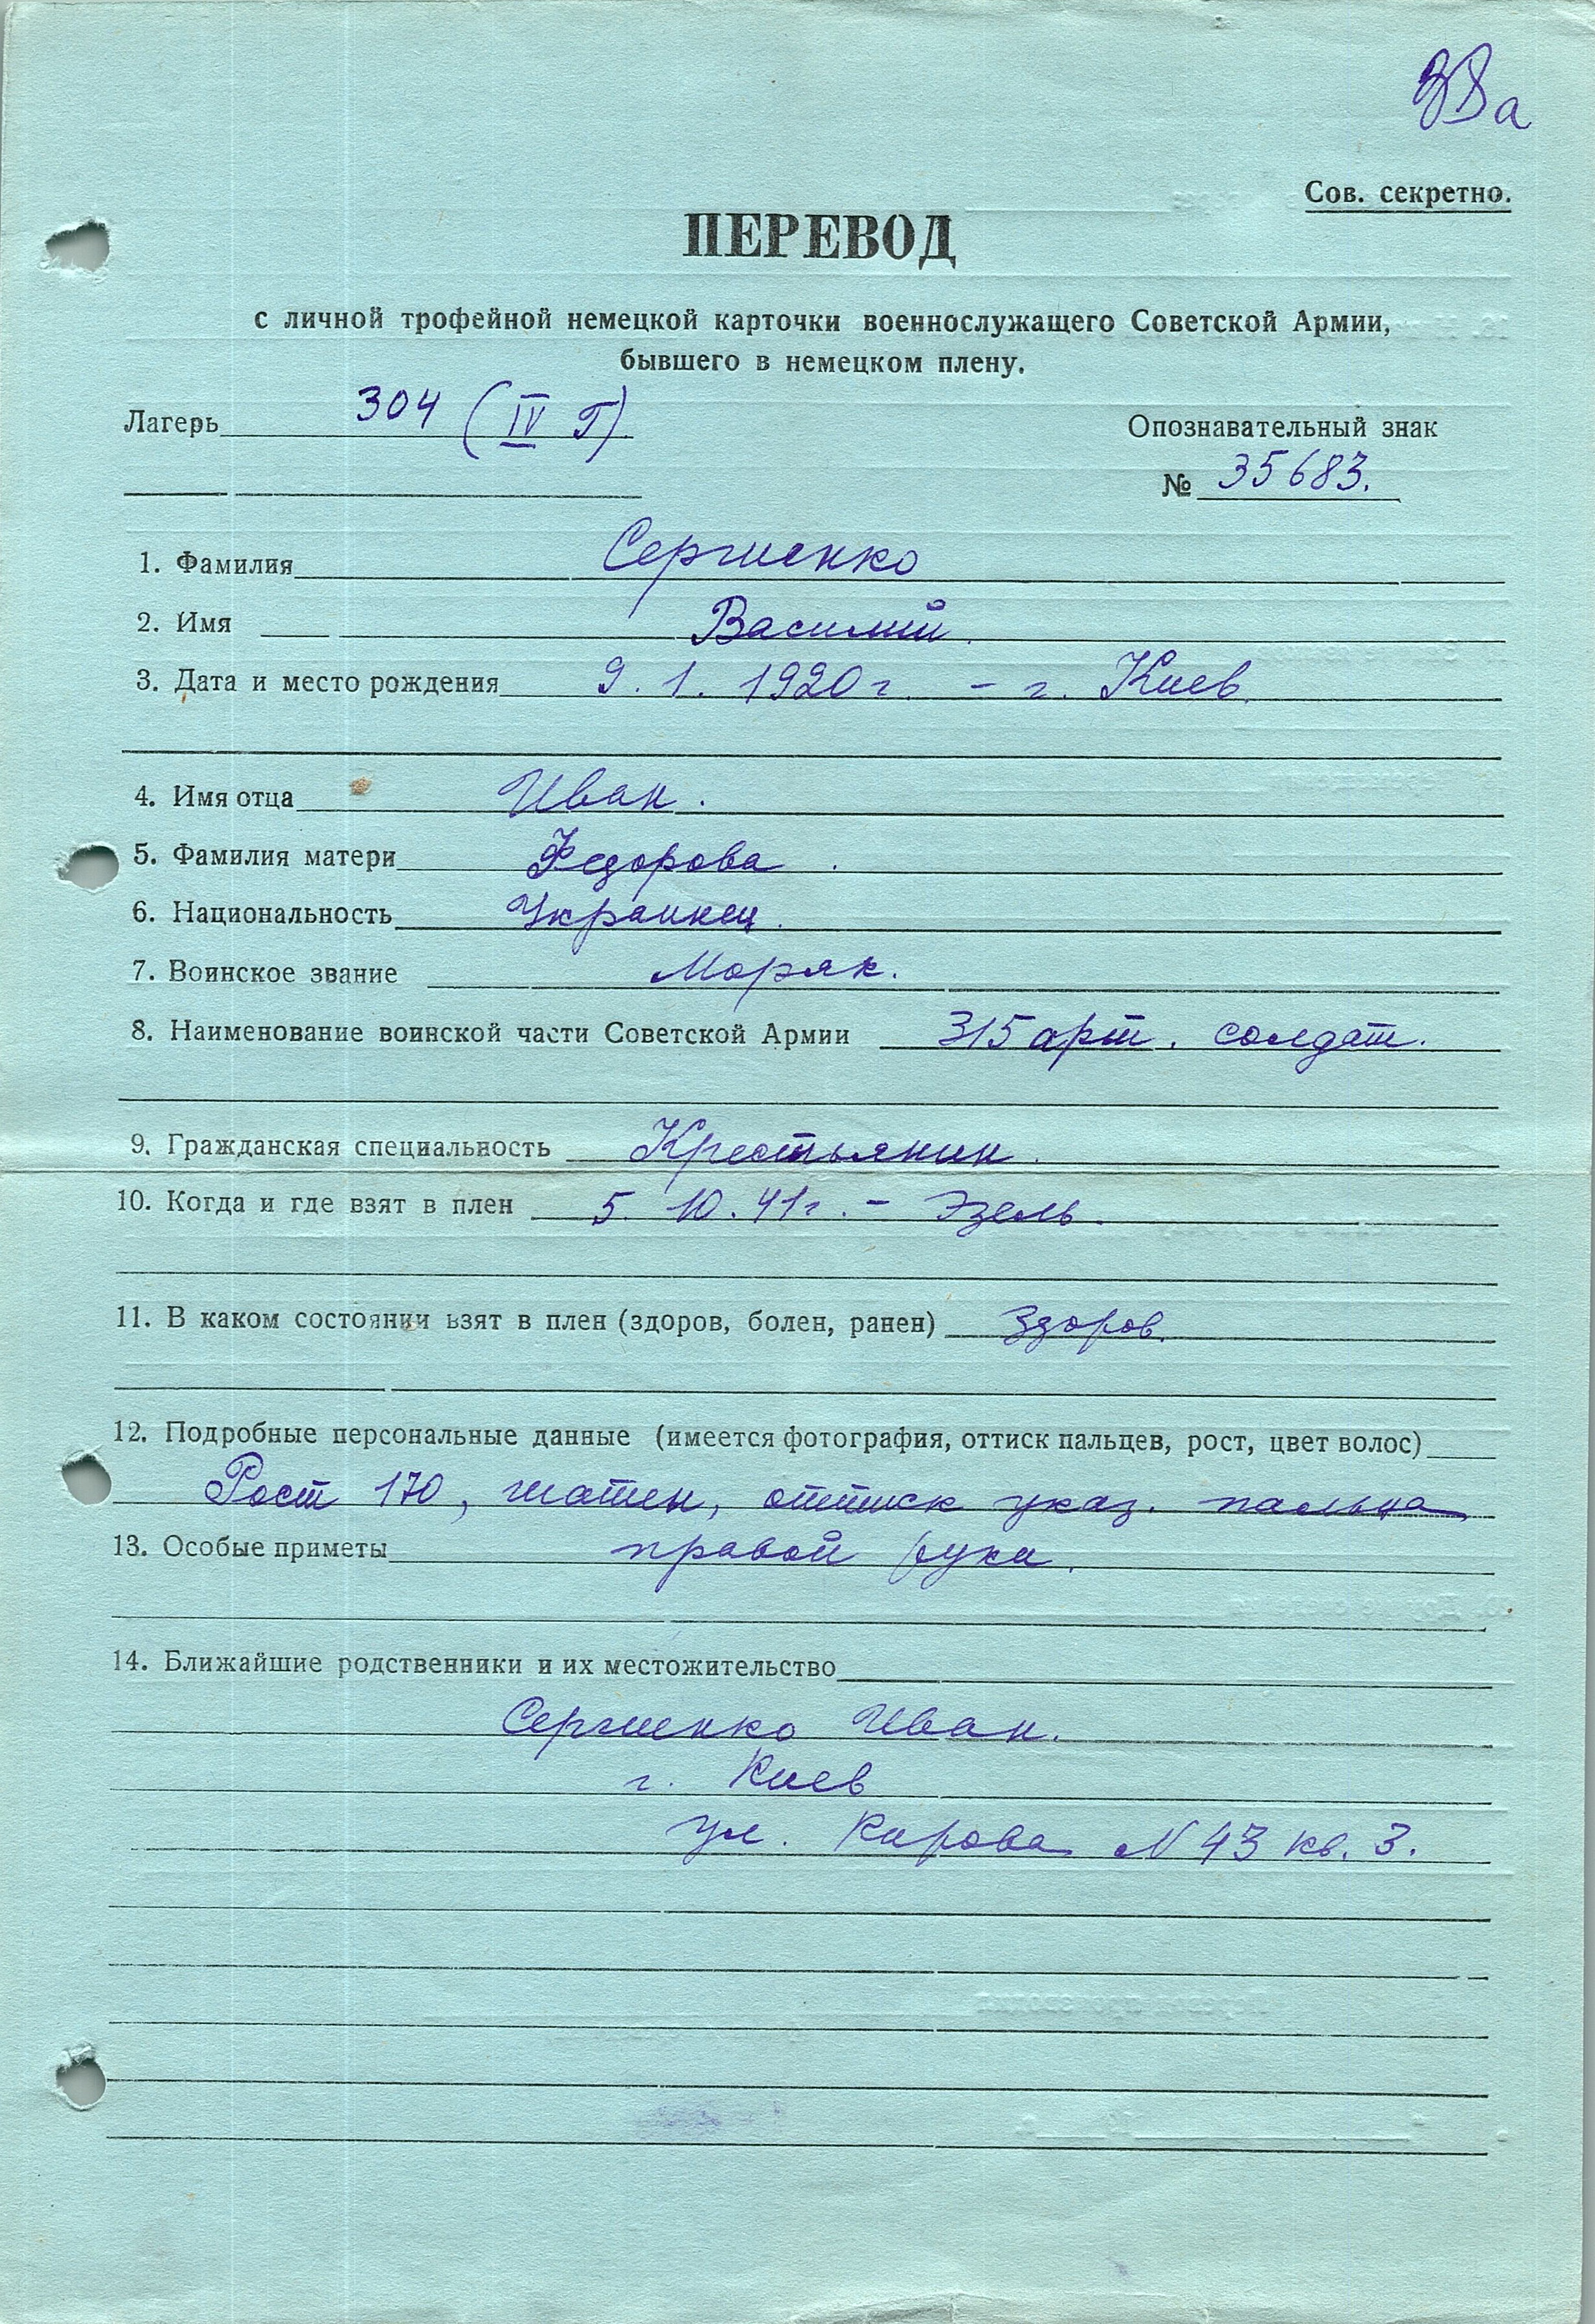 Сов. секретно.
ПЕРЕВОД
с личной трофейной немецкой карточки военнослужащего Советской Армии,
бывшего в немецком плену.
Лагерь 304 (IV Г)
Опознавательный знак
№ 35683.
1. Фамилия Сергиенко
2. Имя Василий.
3. Дата и место рождения 9. 1. 1920 г. – г. Киев.
4. Имя отца Иван.
5. Фамилия матери Федорова.
6. Национальность Украинец.
7. Воинское звание Моряк.
8. Наименование воинской части Советской Армии 315 арт. солдат.
9. Гражданская специальность Крестьянин.
10. Когда и где взят в плен 5. 10. 41 г. – Эзель.
11. В каком состоянии взят в плен (здоров, болен, ранен) Здоров.
12. Подробные персональные данные (имеется фотография, оттиск пальцев, рост, цвет волос)
Рост 170, шатен, оттиск указ. пальца
13. Особые приметы правой руки.
14. Ближайшие родственники и их местожительство
Сергиенко Иван.
г. Киев
ул. Кирова N 43 кв. 3.